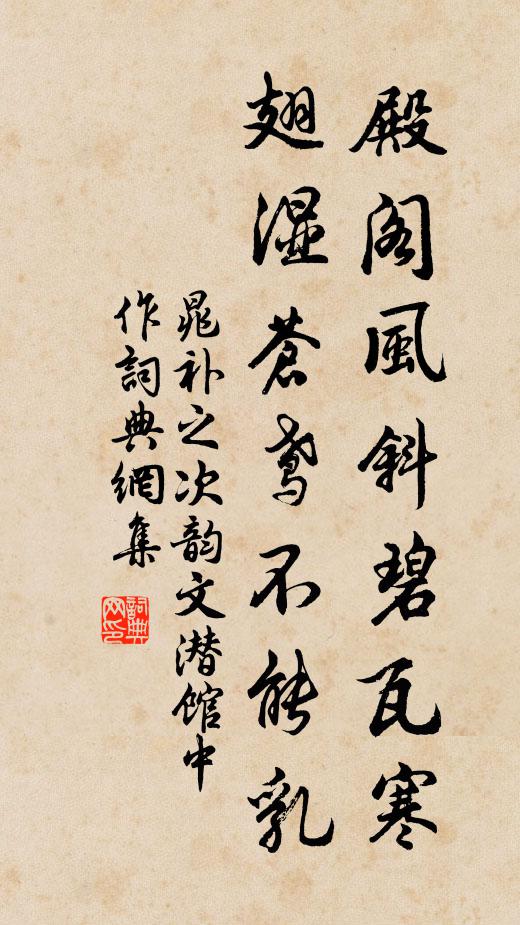 殿阁風斜碧瓦寒
翅湿蒼鳶不能乳
晁补之次韵文潜馆中
作詞典網集
詞典
网印